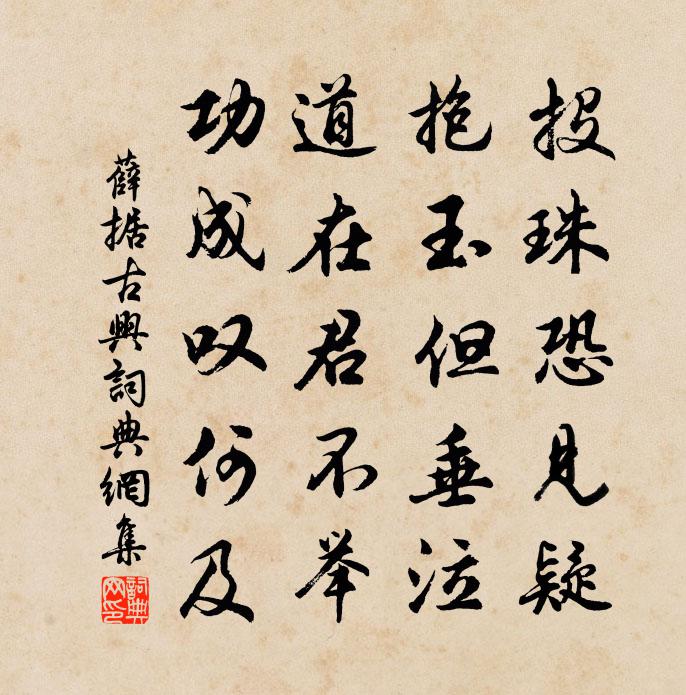 投珠恐見疑
抱玉但垂泣
道在君不举
功成叹何及
薛据古興詞典網集
詞典网印